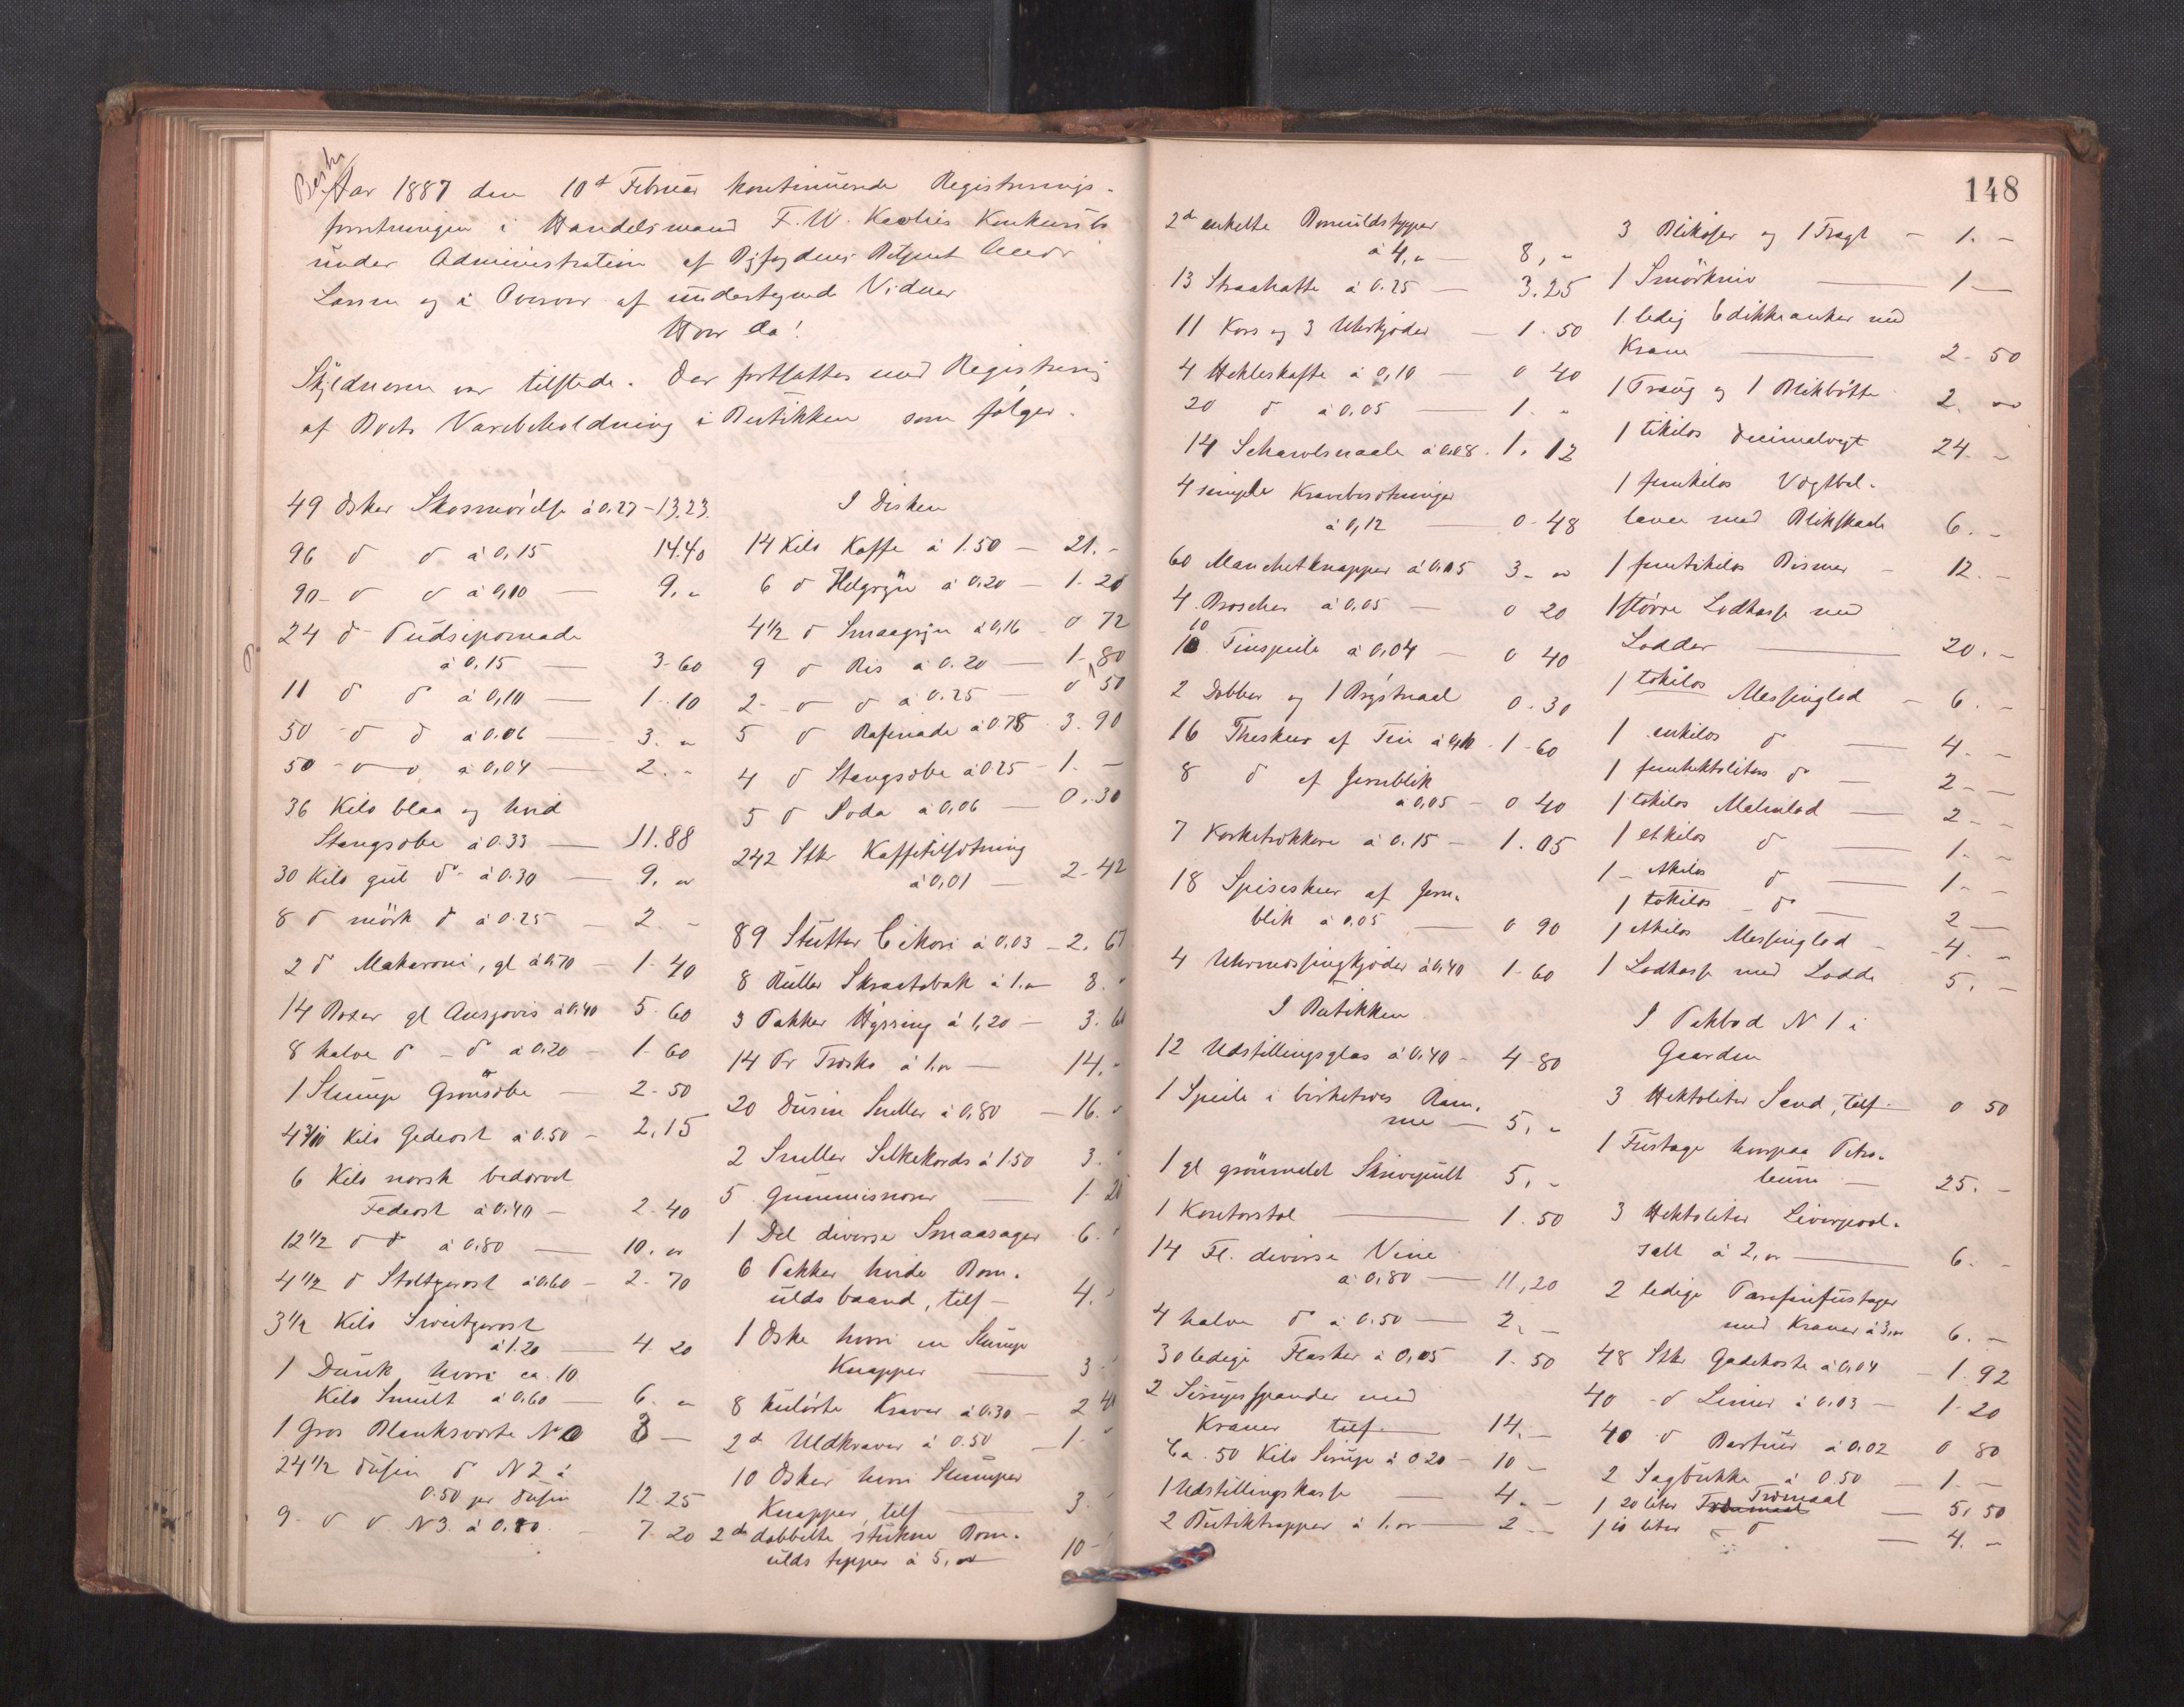 Besk
Aar 1887 den 10d Februar kontinuerede Registrerings-
forretningen i Handelsmand F. W. Konkursbo
under Administration af Byfogdens
Larsen og i Overvær af undertegnede Vidner
Hvor da!
Skyldneren var tilstede. Der fortsattes med Registrering
af Boets Varebeholdning i Butikken som følger.
49 Æsker Skosmörelse à 0.27 - 13.23.
96 d d à 0,15 14.40
90 - d d à 0,10 — 9, "
24 d Pudsepomade
à 0,15 — 3-60
11 d d à 0,10 — 1-10
50 - d d à 0.06 — 3. "
50 - d d à 0,04 — 2. "
36 Kilo blaa og hvid
Stangsæbe à 0.33 — 11.88
30 Kilo gul d à 0.30 — 9, "
8 d mörk d à 0.25 — 2 -
2 d Makaroni, gl à 0,70 - 1-40
14 Boxer gl Ansjovis à 0,40 5-60
8 halve d - d à 0.20 - 1-60
1 Slump Grønsæbe — 2-50
4 3/10 Kilo Gedeost à 0.50 - 2,15
6 Kilo norsk bedærvet
Fedeost à 0,40 - 2-40
12 1/2 d d à 0,80 — 10. "
4 1/2 d Stoltzerost à 0.60 - 2-70
3 1/2 Kilo Sweitzerost
à 1.20 — 4 20
1 Dunk hvori ca. 10
Kilo Smult à 0,60 — 6. "
1 Gros Blanksværte No 0 3 —
24 1/2 Dusin d N 2 à
0.50 pr Dusin 12.25
9 - d d N 3. à 0,80 - 7-20
I Disken
14 Kilo Kaffe à 1.50 — 21. -
6 d Helgryn à 0,20 — 1-20
4 1/2 d Smaagryn à 0,16 0 72
9 d Ris à 0.20 — 1-80
2 - d d à 0.25 — 0 50
5 d Rafinade à 0.78 3.90
4 d Stangsæbe à 0.25 - 1. —
5 d Soda à 0,06 — 0,30
242 Stkr Kaffetilsætning
à 0,01 — 2-42
89 Stutter Cikori à 0,03 - 2.67
8 Ruller Skraatobak à 1. " 8. "
3 Pakker Hyssing à 1,20 — 3.60
14 Pr Træsko à 1. " — 14. "
20 Dusin Sneller à 0,80 — 16. "
2 Sneller Silkekords à 1.50 3. "
5 Gummisnorer — 1-25
1 Del diverse Smaasager 6. "
6 Pakker hvide Bom-
uldsbaand, tils — 4. "
1 Æske hvori en Slump
Knapper — 3 "
8 kulørte Kraver à 0.30 — 2 40
2 d Uldkraver à 0.50 — 1 - "
10 Æsker hvori Slumper
Knapper, tils — 3. "
2 d dobbelte strikne Bom-
ulds tepper à 5, " 10 - "
148
2 d enkelte Bomuldstepper
à 4, " — 8, "
13 Straahatte à 0.25 — 3,25
11 Kors og 3 Uhrkjæder — 1-50
4 Hekleskafte à 0,10 — 0 40
20 d à 0,05 — 1. "
14 Schawlsnaale à 0,08. 1.12
4 simple Kravebesætninger
à 0,12 — 0-48
60 Manchetknapper à 0,05 3 - "
4 Broscher à 0.05 — 0 20
10
10 Tinspeile à 0,04 — 0 40
2 Dobber og 1 Brystnaal 0-30
16 Theskeer af Tin à 0,10 - 1-60
8 d af Jernblik
à 0,05 - 0 40
7 Korketrækkere à 0.15 - 1.05
18 Spiseskeer af Jern-
blik à 0,05 — 0 90
4 Uhrmessingkjæder à 0,40 1-60
I Butikken
12 Udstillingsglas à 0,40 - 4-80
1 Speile i birketræs Ram-
me — 5, "
1 gl grönmalet Skrivepult 5, -
1 Kontorstol — 1.50
14 Fl. diverse Vine
à 0,80 — 11,20
4 halve d à 0.50 — 2, -
30 ledige Flasker à 0,05 1-50
2 Sirupsspander med
Kraner tils. — 14. —
Ca. 50 Kilo Sirup à 0.20 - 10 -
1 Udstillingskasse — 4. -
2 Butiktrapper à 1. " — 2 —
3 Blikøser og 1 Tragt — 1. -
1 Smörkniv — 1 —
1 ledig Edikkeanker med
Krane — 2-50
1 Traug og 1 Blikbøtte 2. "
1 tikilos Decimalvegt 24 -
1 femkilos Vegtbal-
lance med Blikskaale 6. -
1 femtikilos Bismer — 12. -
1 større Lodkasse med
Lodder — 20. -
1 tokilos Messinglod — 6. -
1 enkilos d — 4. -
1 d — 2 - -
1 tokilos Malmlod — 2 - -
1 etkilos d — 1 - -
1 - d — 1 - -
1 tokilos - d — 2 —
1 etkilos Messinglod - 4. -
1 Lodkasse med Lodde 5. -
I Pakbod N 1 i
Gaarden
3 Hektoliter Sand, tils — 0 50
1 Fustage hvorpaa Petro-
leum — 25. -
3 Hektoliter Liverpool-
salt à 2, " — 6. -
2 ledige Parafinfustager
med Kraner à 3, " 6. -
48 Stkr Gadekoste à 0,04 — 1.92
40 - d Limer à 0.03 — 1-20
40 d à 0,02 0 80
2 Sagbukke à 0.50 — 1. -
1 20 liter Træmaal — 5,50
1 10 liter - d — 4. -